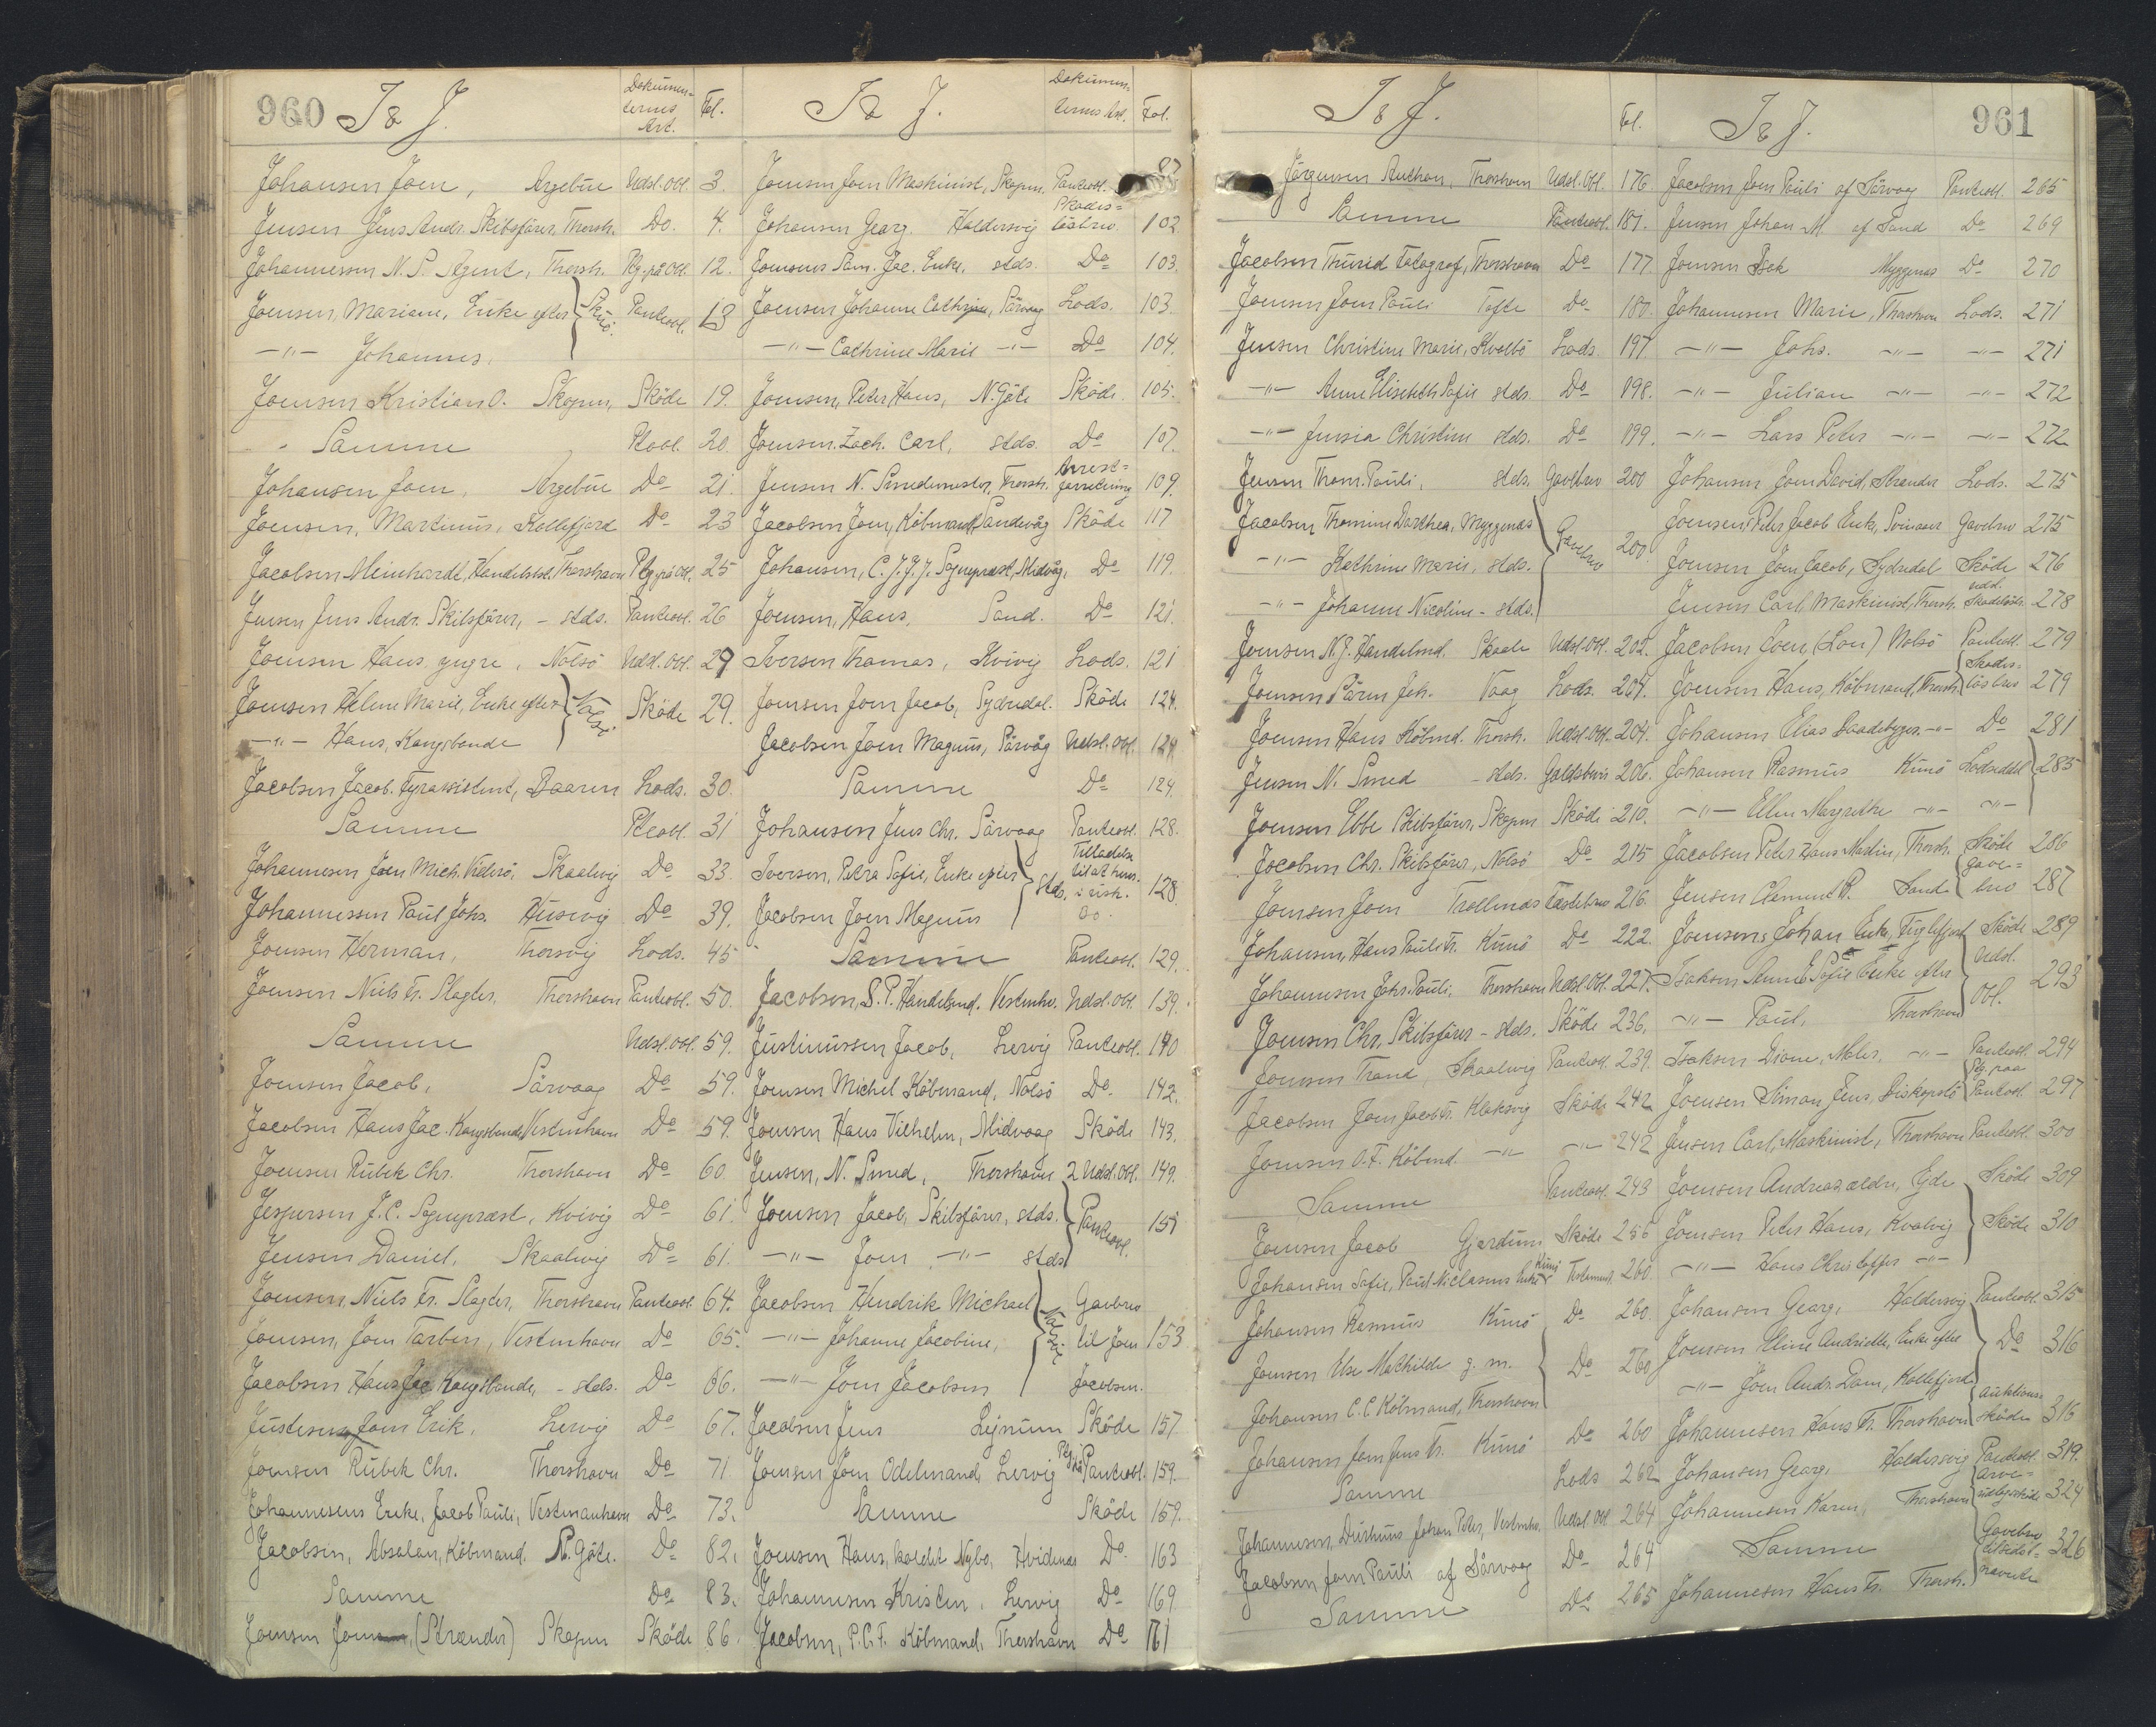 960
I & J.
Dokumen=
ternes
Art.
Fol.
Johansen Joen, Argebûe Udsl.obl. 3.
Jensen Jens Andr. Skibsfører, Thorsh. Do. 4.
Johannessen N. P. Agent, Thorsh. Ptg.påObl. 12.
Joensen, Mariane, Enke efter Skuö. Panteobl. 13
—"— Johannes.
Joensen Kristian O. Skopun, Sköde 19.
Samme Pteobl. 20.
Johansen Joen, Argebûe Do 21.
Joensen, Martinus, Kollefjord Do 23
Jacobsen Meinhardt, Handelsbst. Thorshavn Ptg.påObl. 25
Jensen Jens Andr. Skibsfører, - stds. Panteobl. 26
Joensen Hans yngre, Nolsö Udsl.Obl. 27
Joensen Helene Marie, Enke efter Sköde 29.
—"— Hans, Kongsbonde
Jacobsen Jacob. Fyrassistent, Baaren Lods. 30.
Samme Pteobl. 31
Johannesen Joen Mich. Viderö, Skaalevig Do 33.
Johannessen Paul Johs. Husevig Do 39.
Joensen Herman, Thorsvig Lods. 45
Joensen Niels Fr. Slagter, Thorshavn Panteobl. 50.
Samme Udsl.obl. 59.
Joensen Jacob, Sörvaag Do 59.
Jacobsen Hans Jac. Kongsbonde, Vestmhavn Do 59.
Joensen Rubek Chr. Thorshavn Do 60
Jespersen J. C. Sognepræst, Kvivig Do 61.
Jensen Daniel, Skaalevig Do 61.
Joensen, Niels Fr. Slagter, Thorshavn Panteobl. 64.
Joensen, Joen Tarben, Vestmhavn Do 65.
Jacobsen Hans Jac. Kongsbonde, - stds. Do 66.
Justesen, Joen Erik, Lervig Do 67.
Joensen Rubek Chr. Thorshavn Do 71
Johannesens Enke, Jacob Pauli, Vestmanhavn Do 73.
Jacobsen, Absalon, Købmand, N. Göte. Do 82.
Samme Do 83.
Joensen Joen, (Strænder) Skopun Sköde 86.
I & J.
Dokumen=
ternes Art.
Fol.
Joensen Joen Maskinist, Skopun. Panteobl. 87
Johansen Georg. Haldersvig Skades=löshrv. 102
Joensens Sam. Jac. Enke, stds. Do 103.
Joensen Johanne Cathrine, Sörvaag Lods. 103.
—"— Cathrine Marie —"— Do 104.
Joensen, Peter Hans, N. Göte Sköde. 105.
Joensen. Zach. Carl, stds. Do 107.
Jensen N. Smedemester, Thorsh. Arrest=forretning 109.
Jacobsen Joen, Købmand, Sandevåg Sköde 117
Johansen, C. J. J. J. Sognepræst, Midvåg, Do 119.
Joensen, Hans, Sand. Do 121.
Iversen Thomas, Kvivig Lods. 121
Joensen Joen Jacob, Sydredal. Sköde 124.
Jacobsen Joen Magnus, Sörvåg Udsl.obl. 124
Samme Do 124.
Johansen Jens Chr. Sörvaag Panteobl. 128.
Iversen, Petra Sofie, Enke efter stds. Tilladelse til at hens. i uisk. Bo. 128
Jacobsen Joen Magnus
Samme Panteobl. 129.
Jacobsen, S. P. Handelsmd. Vestmhv. Udsl.obl. 139.
Justinussen Jacob, Lervig Panteobl. 140
Joensen Michel Købmand, Nolsö Do 142.
Joensen Hans Vilhelm, Midvaag Sköde 143.
Jensen, N. Smed, Thorshavn 2 Udsl.obl. 149.
Joensen Jacob, Skibsfører, stds. Panteobl. 151
—"— Joen —"— stds
Jacobsen Hendrik Michael Gavebrev
—"— Johanne Jacobine, til Joen 153
—"— Joen Jacobsen Jacobsen.
Jacobsen Jens Lejnum Sköde 157.
Joensen Joen Odelsmand, Lervig Ptg. på Panteobl. 159.
Samme Sköde 159.
Joensen Hans, kaldet Nybo, Hvidenes Do 163
Johannesen Kristen, Lervig Do 169
Jacobsen, P. C. F. Købmand, Thorshavn Do 161
I & J.
Fol.
Jörgensen Anthon, Thorshavn Udsl.Obl. 176.
Samme Panteobl. 181.
Jacobsen Thurid Fotograf, Thorshavn Do 177
Joensen Joen Pauli Tofte Do 180.
Jensen Christine Marie, Kvalbö Lods. 197
—"— Anne Elisebeth Sofie stds. Do 198.
—"— Jensia Christine stds. Do 199.
Jensen Thom. Pauli, stds. Gavebrev 200
Jacobsen Thomine Dorthea, Myggenæs Gavebrev 200.
—"— Kathrine Marie, stds.
—"— Johanne Nicoline - stds.
Joensen N. J. Handelsmd. Skaale Udsl.Obl. 202.
Joensen Sören Joh. Vaag Lods. 204.
Joensen Hans Købmd. Thorsh. Udsl.Obl. 204.
Jensen N. Smed - stds. Gjældsbrev 206.
Joensen Ebbe Skibsfører, Skopun Sköde 210.
Jacobsen Chr. Skibsfører, Nolsö Do 215
Joensen Joen Trollenæs Fæstebrev 216.
Johansen, Hans Pauli Fr. Kunö Do 222.
Johannesen Johs. Pauli, Thorshavn Udsl.Obl. 227.
Joensen Chr. Skibsfører - stds. Sköde 236.
Joensen Trond, Skaalevig Panteobl. 239.
Jacobsen Joen Jacob Fr. Klaksvig Sköde 242
Joensen O. F. Købmd. —"— —"— 242
Samme Panteobl. 243
Joensen Jacob Gjerdum Sköde 256
Johansen Sofie, Poul Niclasens Enke Kunö Testament 260.
Johansen Rasmus Kunö Do 260.
Joensen Else Mathilde g. m. Do 260
Johansen C. C. Købmand, Thorshavn
Johansen Joen Jens Fr. Kunö Do 260
Samme Lods 262
Johannesen, Durhuus Johan Peter, Vestmhv. Udsl.Obl. 264
Jacobsen Joen Pauli af Sörvaag Do 264
Samme Do 265
I & J.
961
Jacobsen Joen Pauli af Sörvaag Panteobl. 265
Jensen Johan M. af Sand Do 269
Joensen Isak Myggenæs Do 270
Johannesen Marie, Thorshavn Lods. 271
—"— Johs. —"— —"— 271
—"— Julian —"— —"— 272
—"— Lars Peter —"— —"— 272
Johansen Joen David, Strænder Lods. 275
Joensens Peter Jacob Enke, Svinaaer Gavebrev 275
Joensen Joen Jacob, Sydredal Sköde 276
Jensen Carl, Maskinist, Thorsh. udsl. Skadeslösbr. 278
Jacobsen Joen, (Lon) Nolsö Panteobl. 279
Joensen Hans, Købmand, Thorsh. Skades=lösbrev 279
Johansen Elias Baadebygger. —"— Do 281
Johansen Rasmus Kunö Lodseddel 285
—"— Ellen Margrethe —"— —"—
Jacobsen Peter Hans Martin, Thorsh. Sköde 286
Jensen Clement R. Sand Gave=brev 287
Joensens Johan Enke, Fuglefjord Sköde 289
Isaksen Anne E Sofie Enke efter Udsl. Obl. 293
—"— Poul, Thorshavn
Isaksen Dione, Maler, —"— Panteobl. 294
Joensen Simon Jens, Biskopstö Ptg. paa Panteobl. 297
Jensen Carl, Maskinist, Thorshavn Panteobl. 300
Joensen Andreas ældre, Ejde Sköde 309
Joensen Peter Hans, Kvalvig Sköde 310
—"— Hans Christoffer —"—
Johansen Georg, Haldersvig Panteobl. 315
Joensen Eline Andriette, Enke efter Do 316
—"— Joen Andr. Dam, Kollefjord
Johannesen Hans Fr. Thorshavn auktions=sköde 316
Johansen Georg, Haldersvig Panteobl. 319.
Johannesen Karen, Thorshavn Arve=udlægssköde 324
Samme Gavebrev 326
Johannesen Hans Fr. Thorsh.